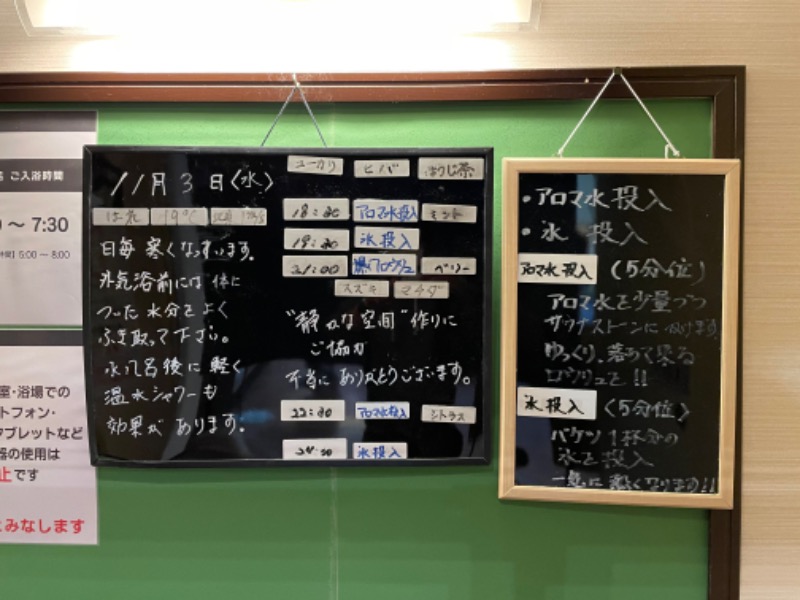 ご入浴時間
～ 7:30
5:00 ～ 8:00
室・浴場での
トフォン・
タブレットなど
器の使用は
止です
とみなします
11月3日〈水〉
19℃
日毎 寒くなっています。
外気浴前には 体に
ついた 水分を よく
ふき取って下さい。
水風呂後に 軽く
温水シャワーも
効果が あります。
ユーカリ ヒバ ほうじ茶
18:30 アロマ水投入 ミント
19:30 氷投入
21:00 爆バフロウリュ ベリー
スズキ マチダ
"静かな空間"作りに
ご協力
本当に ありがとうございます。
22:30 アロマ水投入 シトラス
24:30 氷投入
・アロマ水投入
・氷 投入
アロマ水投入 (5分位)
アロマ水を少量づつ
サウナストーンに かけます
ゆっくり、落ちて来る
ロウリュを!!
氷投入 〈5分位〉
バケツ1杯分の
氷を投入
一気に 熱くなります!!